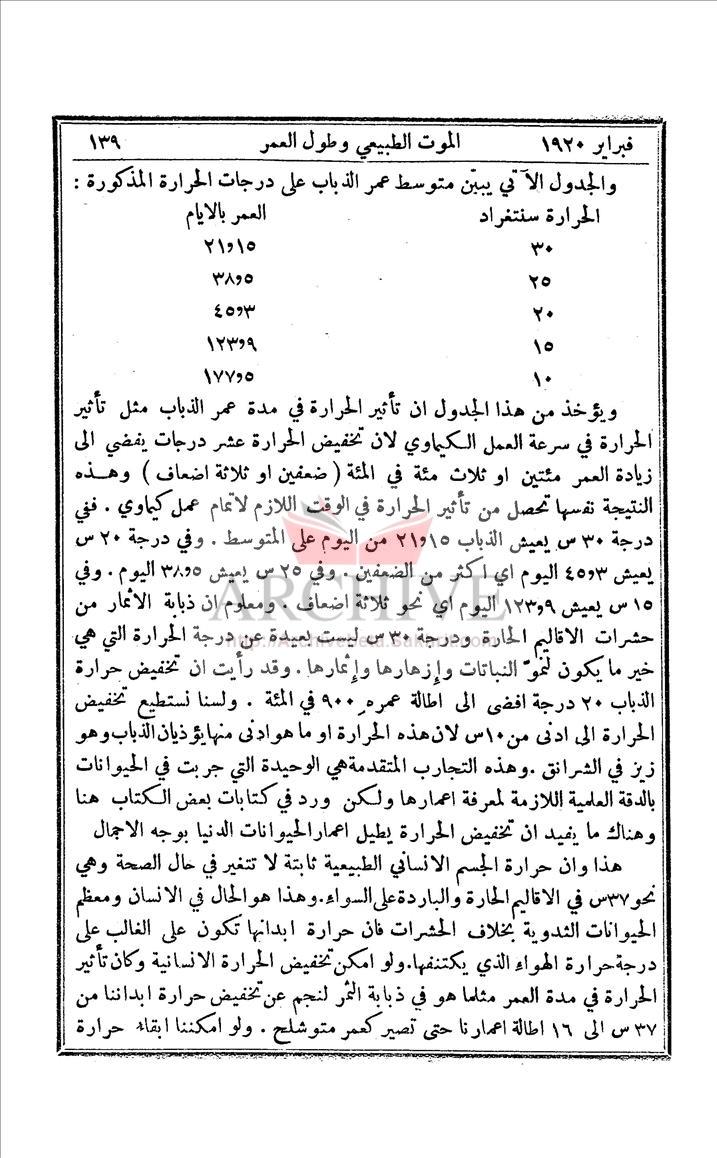 فبراير ١٩٢٠ الموت الطبيعي وطول العمر ١٣٩
والجدول الآتي يبيّن متوسط عمر الذباب على درجات الحرارة المذكورة :
الحرارة سنتغراد العمر بالايام
٣٠ ٢١٫١٥
٢٥ ٣٨٫٥
٢٠ ٤٥٫٣
١٥ ١٢٣٫٩
١٠ ١٧٧٫٥
ويؤخذ من هذا الجدول ان تأثير الحرارة في مدة عمر الذباب مثل تأثير
الحرارة في سرعة العمل الكيماوي لان تخفيض الحرارة عشر درجات يفضي الى
زيادة العمر مئتين او ثلاث مئة في المئة ( ضعفين او ثلاثة اضعاف ) وهذه
النتيجة نفسها تحصل من تأثير الحرارة في الوقت اللازم لاتمام عمل كيماوي . ففي
درجة ٣٠ س يعيش الذباب ٢١٫١٥ من اليوم على المتوسط . وفي درجة ٢٠ س
يعيش ٤٥٫٣ اليوم اي اكثر من الضعفين . وفي ٢٥ س يعيش ٣٨٫٥ اليوم . وفي
١٥ س يعيش ١٢٣٫٩ اليوم اي نحو ثلاثة اضعاف . ومعلوم ان ذبابة الاثمار من
حشرات الاقاليم الحارة ودرجة ٣٠ س ليست بعيدة عن درجة الحرارة التي هي
خير ما يكون لنموّ النباتات وإزهارها وإثمارها . وقد رأيت ان تخفيض حرارة
الذباب ٢٠ درجة افضى الى اطالة عمره ٩٠٠ في المئة . ولسنا نستطيع تخفيض
الحرارة الى ادنى من ١٠ س لان هذه الحرارة او ما هو ادنى منها يؤذيان الذباب وهو
زيز في الشرانق . وهذه التجارب المتقدمة هي الوحيدة التي جربت في الحيوانات
بالدقة العلمية اللازمة لمعرفة اعمارها ولكن ورد في كتابات بعض الكتاب هنا
وهناك ما يفيد ان تخفيض الحرارة يطيل اعمار الحيوانات الدنيا بوجه الاجمال
هذا وان حرارة الجسم الانساني الطبيعية ثابتة لا تتغير في حال الصحة وهي
نحو ٣٧ س في الاقاليم الحارة والباردة على السواء . وهذا هو الحال في الانسان ومعظم
الحيوانات الثدوية بخلاف الحشرات فان حرارة ابدانها تكون على الغالب على
درجة حرارة الهواء الذي يكتنفها . ولو امكن تخفيض الحرارة الانسانية وكان تأثير
الحرارة في مدة العمر مثلما هو في ذبابة الثمر لنجم عن تخفيض حرارة ابداننا من
٣٧ س الى ١٦ اطالة اعمارنا حتى تصير كعمر متوشلح . ولو امكننا ابقاء حرارة
ARCHIVE